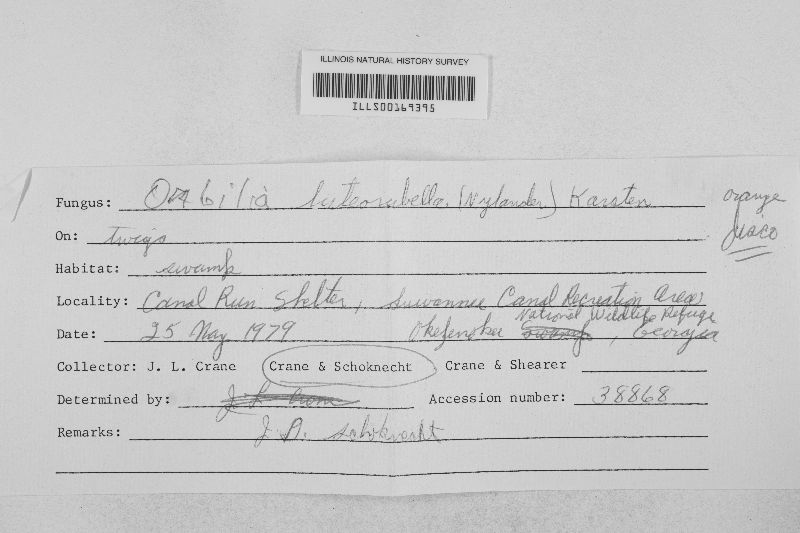 ILLINOIS NATURAL HISTORY SURVEY
ILLS00169395
Fungus: Orbilia luteorubella (Nylander) Karsten
orange
disco
On: twigs
Habitat: swamp
Locality: Canal Run Shelter, Suwannee Canal Recreation Area
Date: 25 May 1979 Okefenokee swamp National Wildlife Refuge, Georgia
Collector: J. L. Crane Crane & Schoknecht Crane & Shearer
Determined by: J. L. Crane Accession number: 38868
Remarks: J. D. Schoknecht